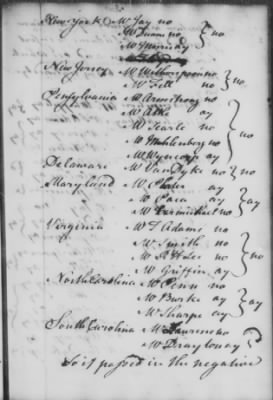 New York Mr Jay no
Mr Duane no } no
Mr Morriss ay
New Jersey Mr Witherspoon no } no
Mr Fell no
Pensylvania Mr Armstrong no
Mr Atlee ay
Mr Searle no } no
Mr Muhlenberg no
Mr Wyncoop ay
Delaware Mr Van Dyke no } no
Maryland Mr Plater ay
Mr Paca ay } ay
Mr Carmichael no
Virginia Mr T Adams no
Mr Smith no
Mr no } no
Mr Griffin ay
North Carolina Mr Penn no
Mr Burke ay } ay
Mr Sharpe ay
South Carolina Mr Laurens no
Mr Drayton ay }
So it passed in the negative